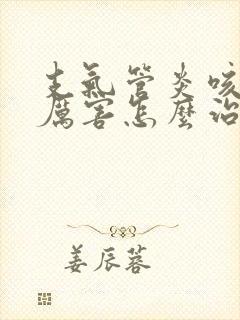 支氣管炎咳
厲害怎麼治
姜辰蓉